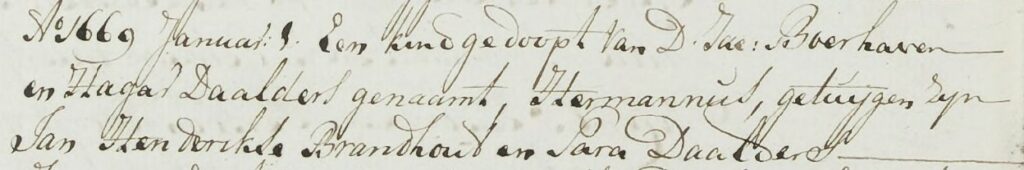 Ao 1669 Januar: 1. Een kind gedoopt van D. Jac: Boerhaven
en Hagar Daalders genaamt, Hermannus, getuygen zyn
Jan Henderikse Brandhout en Sara Daalders